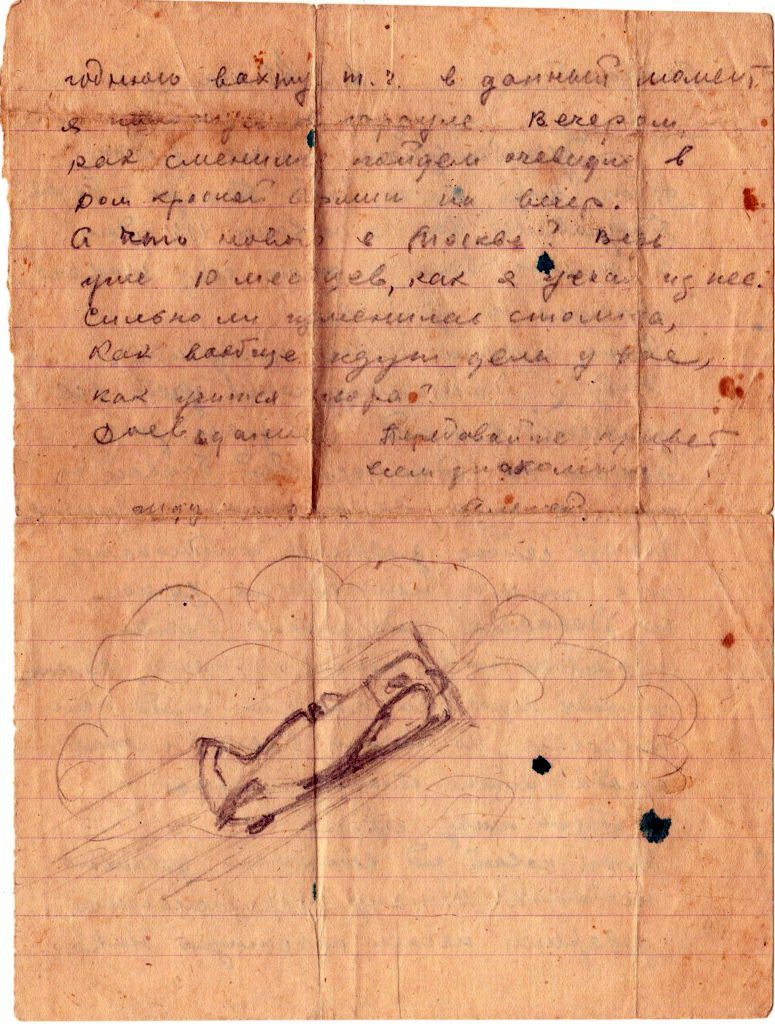 годнюю вахту т.ч. в данный момент
я карауле. Вечером,
как сменимся пойдем очевидно в
дом красной Армии на вечер.
А что нового в Москве? Ведь
уже 10 месяцев, как я уехал из нее.
Сильно ли изменилась столица,
Как вообще идут дела у вас,
как учится Нора?
Досвидание Передавайте привет
всем знакомым
жду